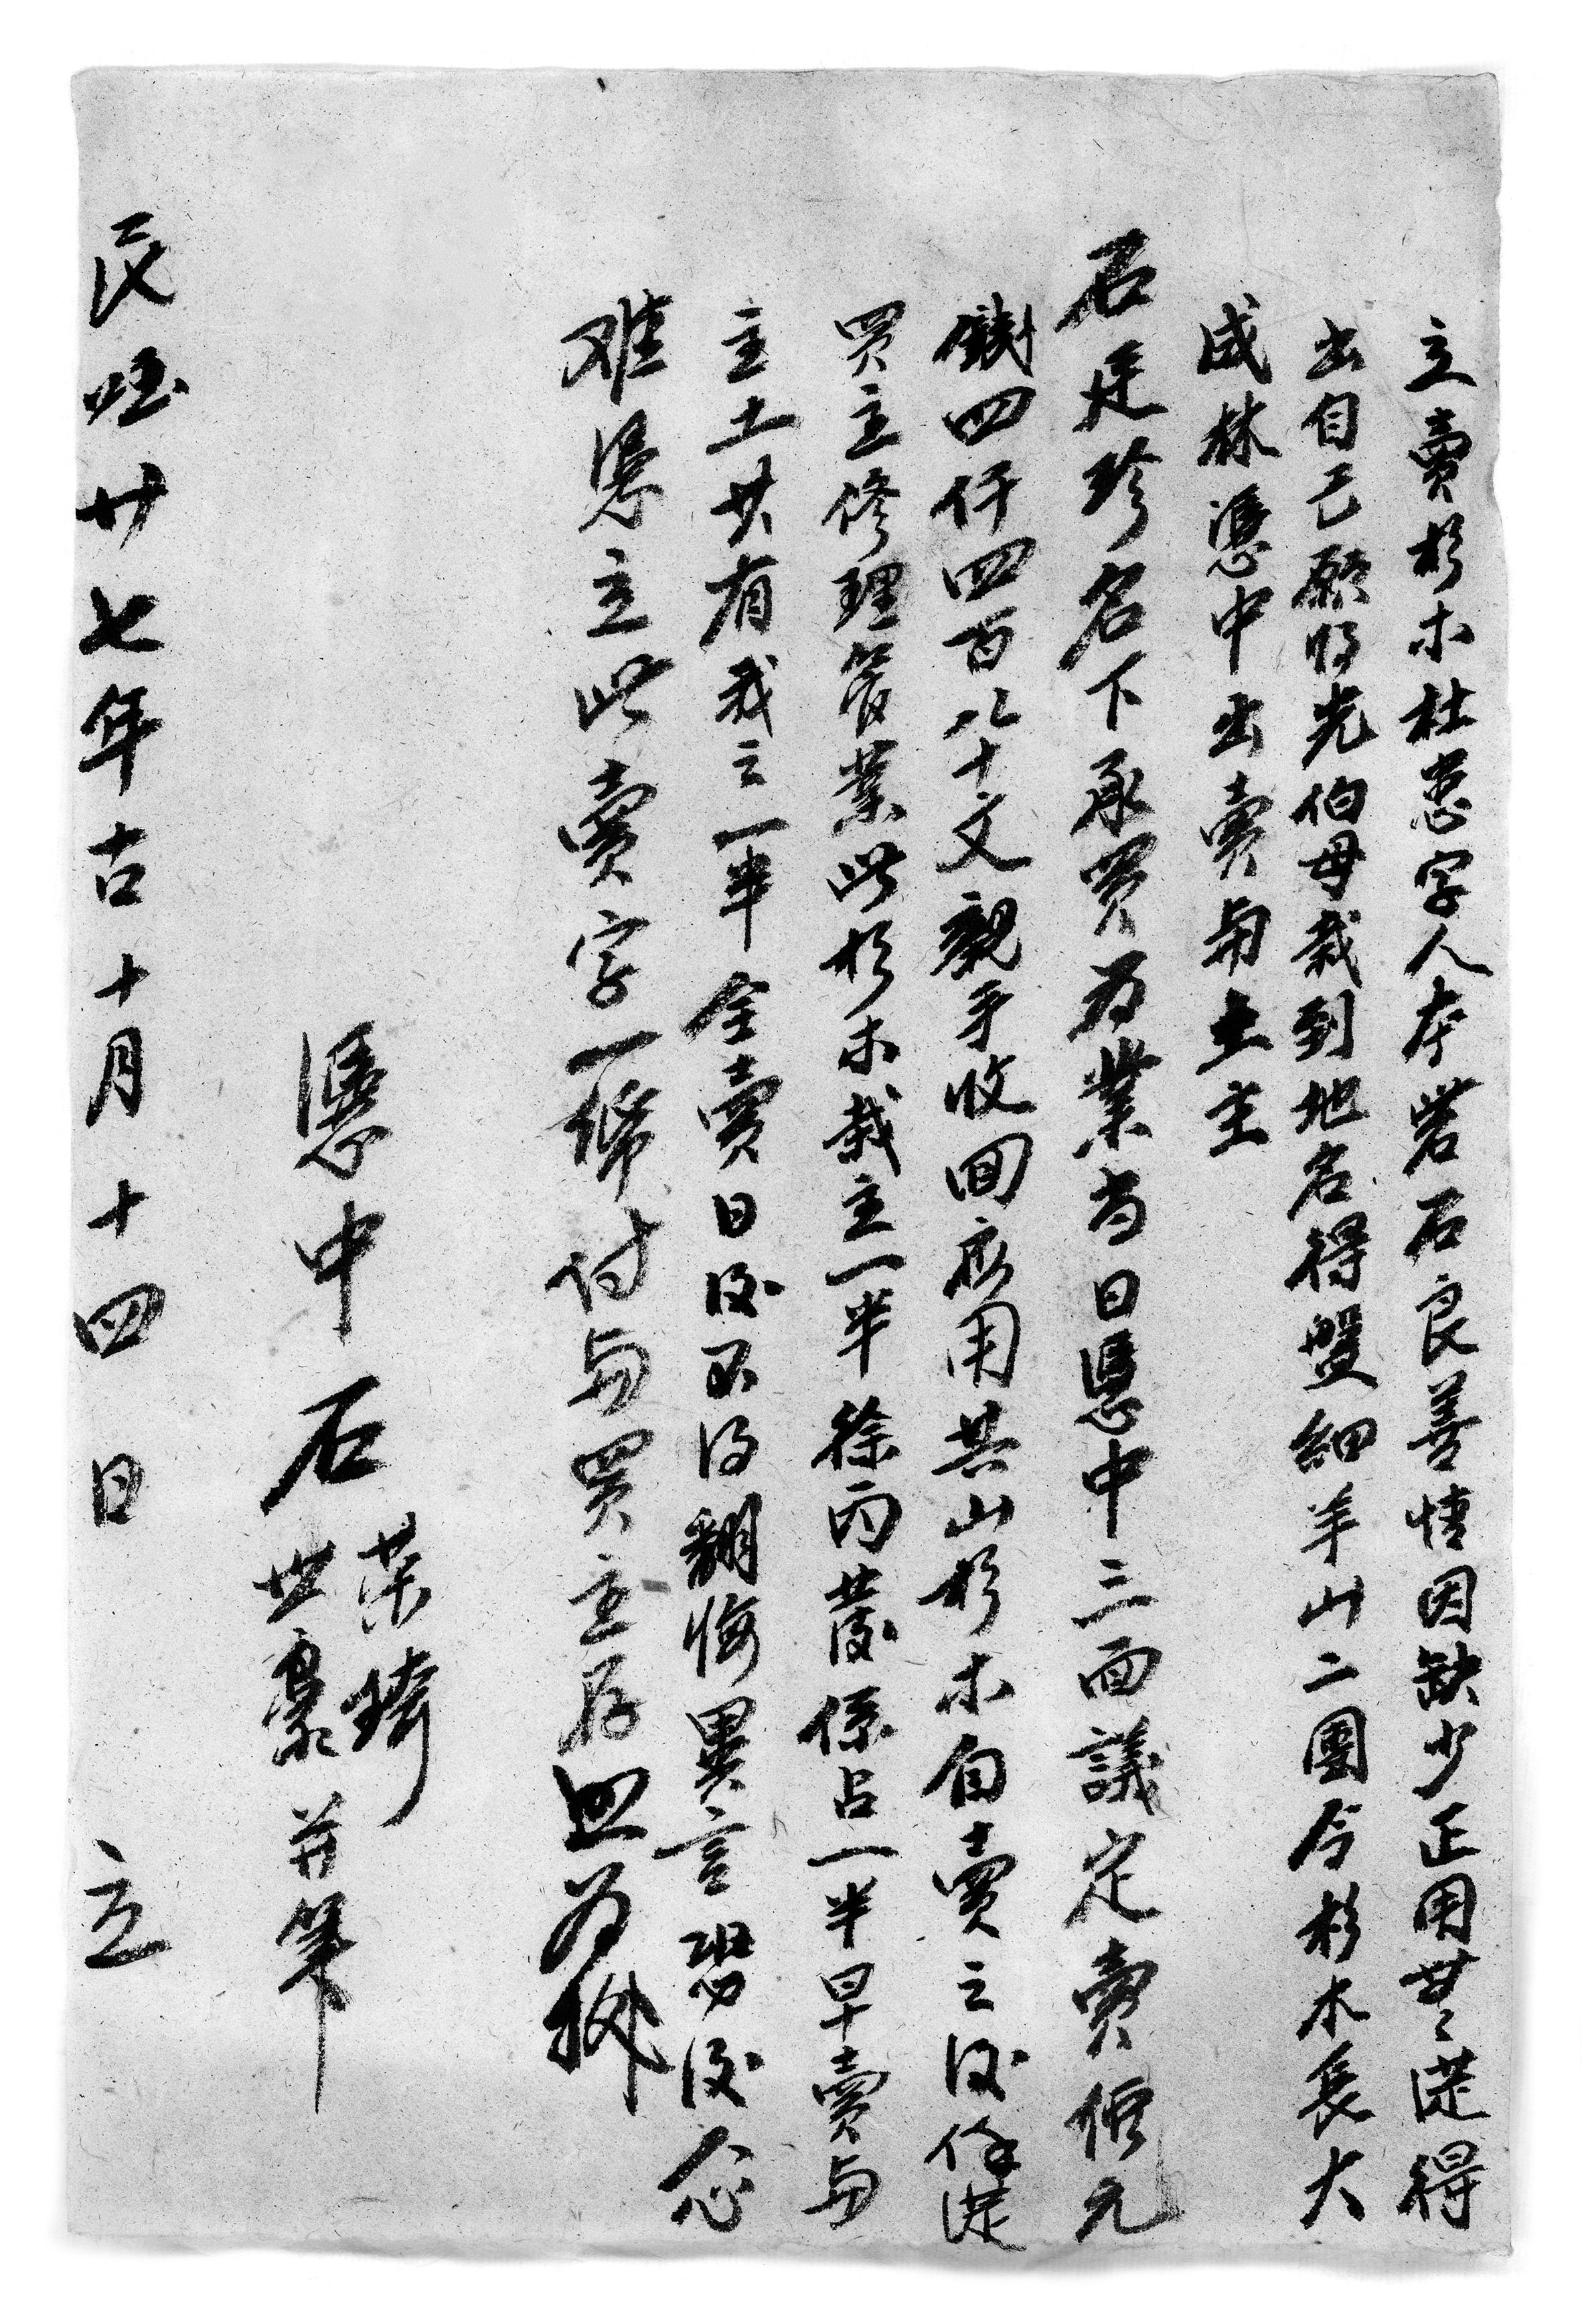 立賣杉木杜悉字人本砦石良善情因缺少正用無從得
出自己願將先伯母栽到地名得盤細羊山二團今杉木長大
成林憑中出賣與土主
石廷珍名下承買為業当日憑中三面議定賣價元
錢四仟四百八十文親手收回應用其山杉木自賣之後任從
買主修理管業此杉木栽主一半徐丙發係占一半早賣与
主土共有我之一半全賣日後不得翻悔異言恐後人心
难憑立此賣字一紙付与買主存照為據
憑中 石 榮錡 世豪 并筆
民國廿七年古十月十四日 立